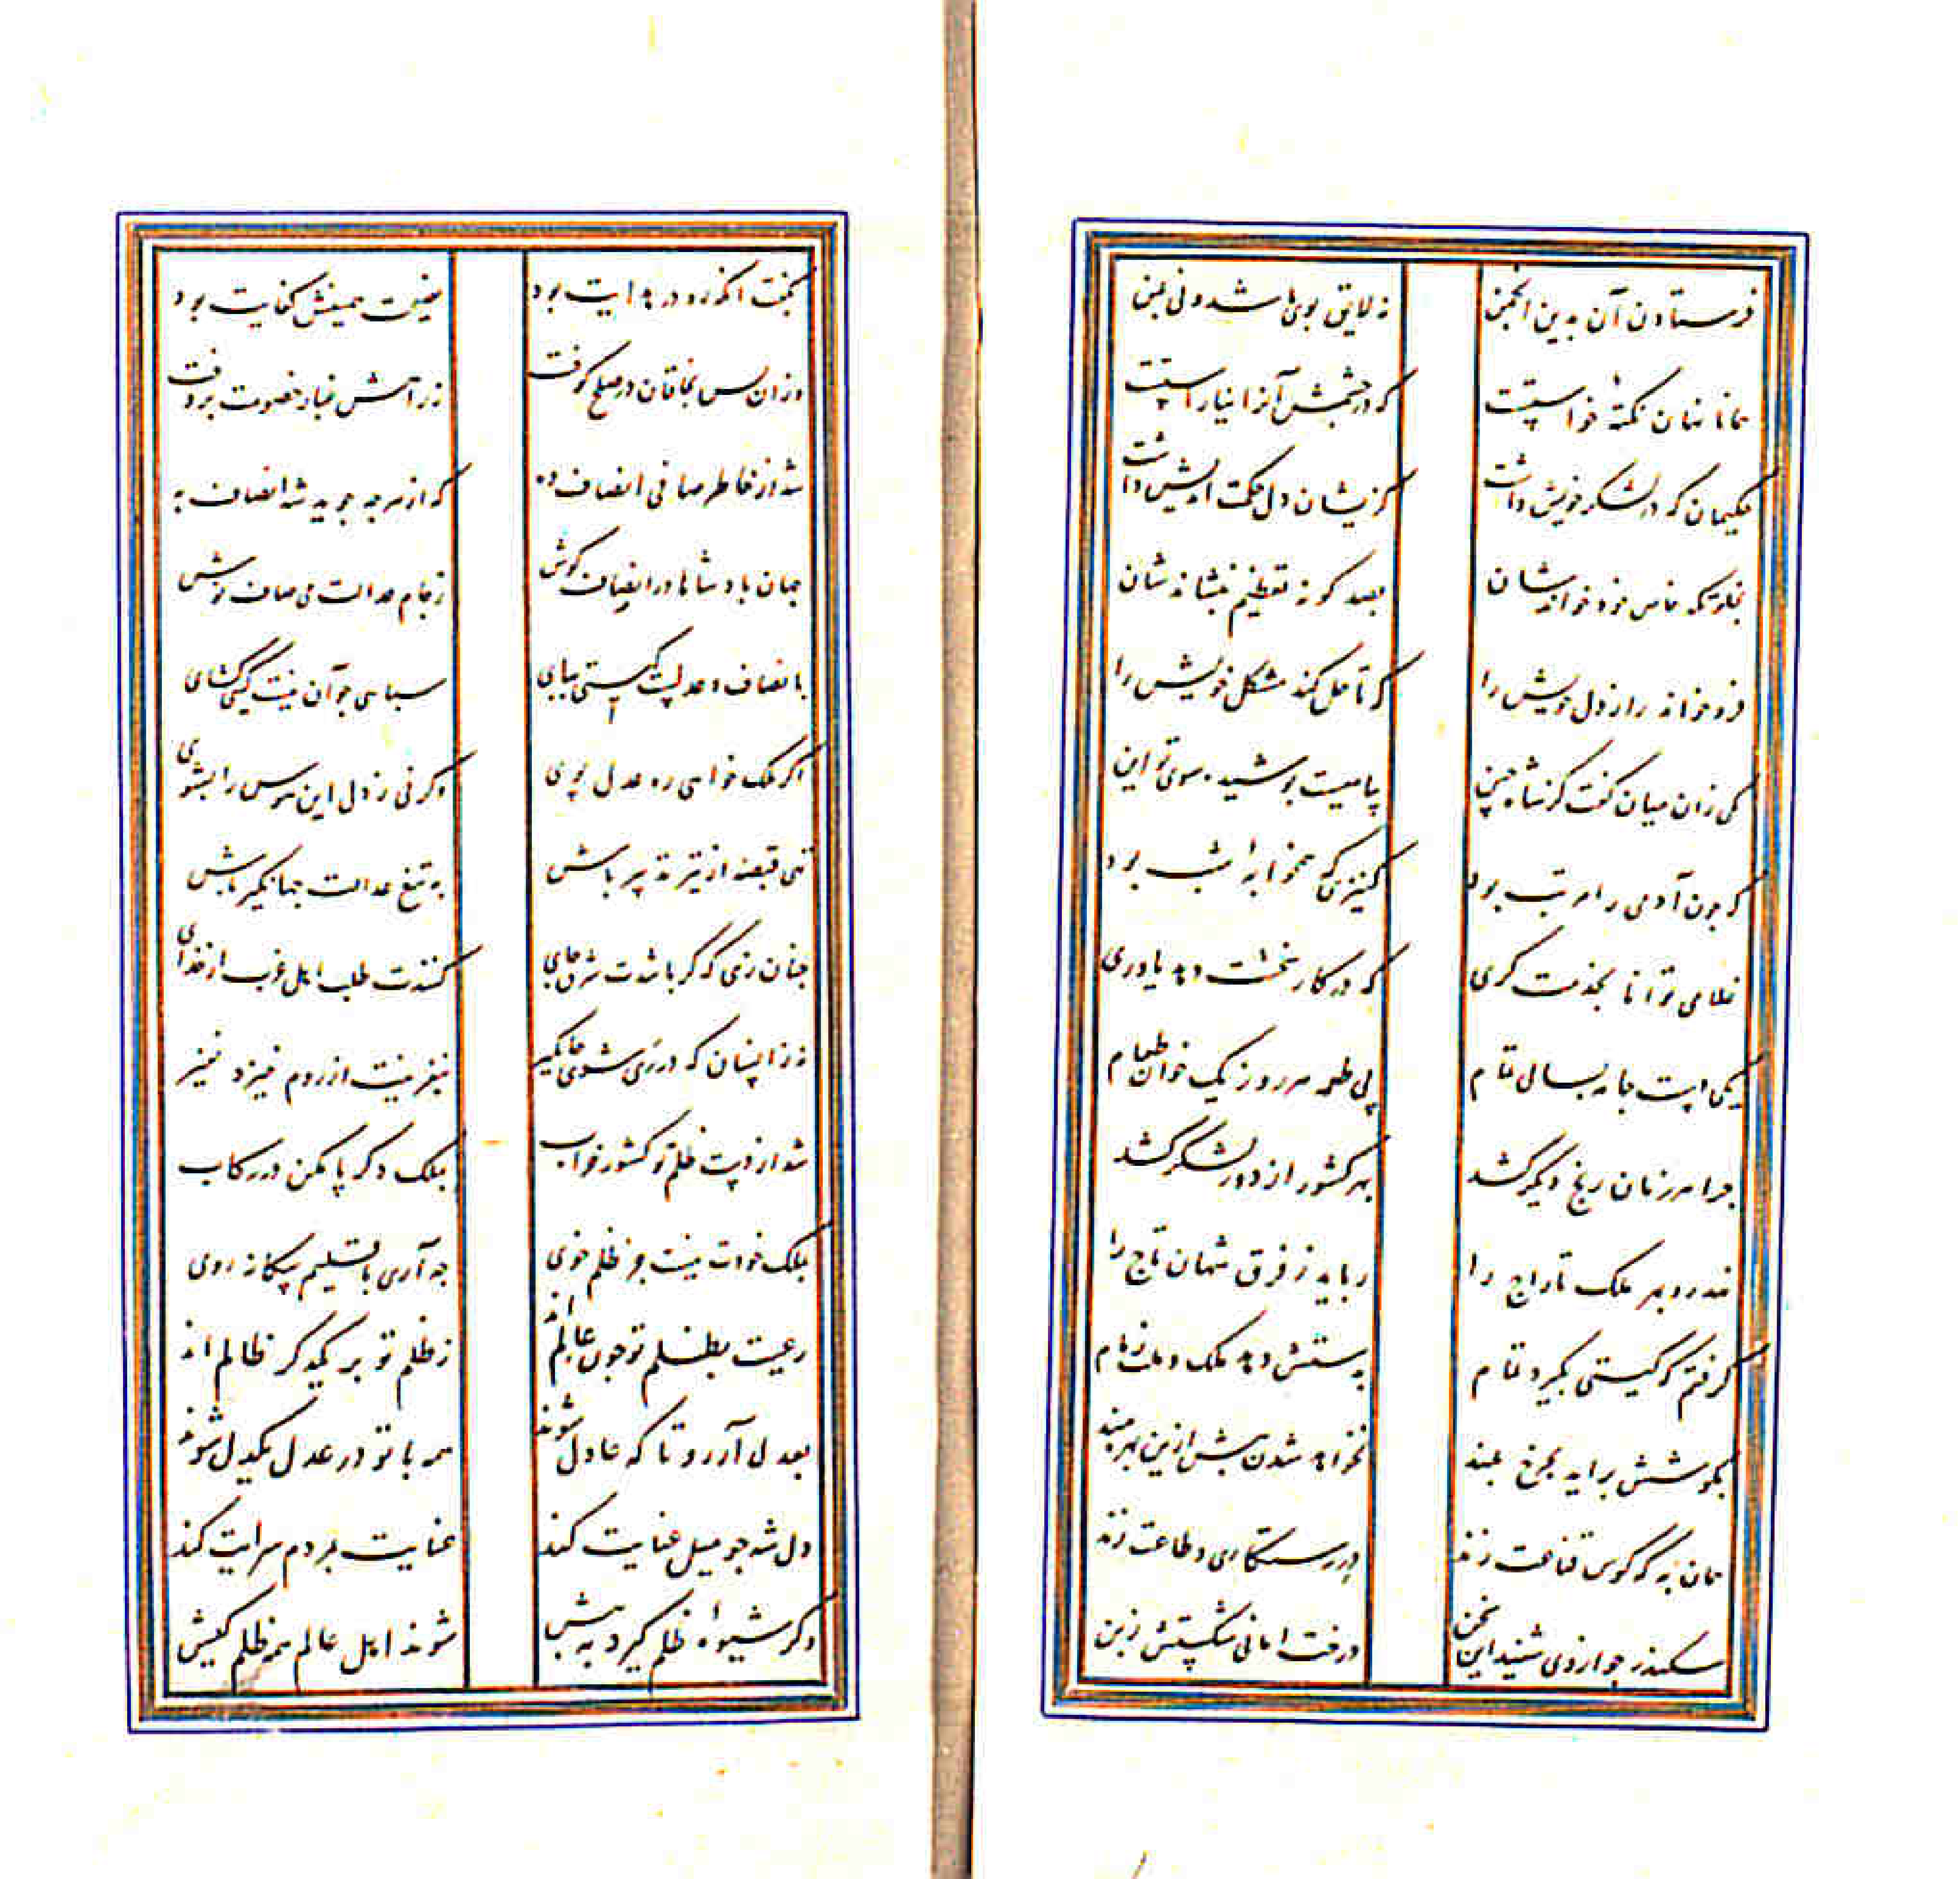 فرستادن آن بدین انجمن نه لایق بوی باشد و نی بمن
همانا نهان نکتهٔ خواستست که در چشمش آنرا نیاراستست
حکیمان که در لشکر خویش داشت کزیشان دل حکمت اندیش داشت
بخلوتگه خاص خود خواندشان بصد گونه تعظیم بنشاندشان
فرو خواند راز دل خویش را که تا حل کند مشکل خویش را
یکی زان میان گفت کز شاه چین پیامیست پوشیده سوی تو این
که چون آدمی را مرتب بود کنیزی که همخوابهٔ شب بود
غلامی توانا بخدمت گری که در کار سختت دهد یاوری
یکی دست جامه بسالی تمام پی طعمه هر روز یک خوان طعام
چرا هر زمان رنج دیگر کشد بهر کشور از دور لشکر کشد
نهد رو بهر ملک تاراج را رباید ز فرق شهان تاج را
گرفتم که گیتی بگیرد تمام بدستش دهد ملک و ملت زمام
بکوشش براید بچرخ بلند نخواهد شدن بیش ازین بهره مند
همان به که کوس قناعت زند در رستگاری و طاعت زند
سکندر چو از وی شنید این سخن درخت امانی شکستش ز بن
بگفت آنکه رو در هدایت بود نصیحت همینش کفایت بود
وزان پس بخاقان در صلح کوفت ز راهش غبار خصومت بروفت
شد از خاطر صافی انصاف ده که از هر چه جوید شه انصاف به
جهان پادشاها در انصاف کوش ز جام عدالت می صاف نوش
بانصاف و عدلست گیتی بپای سپاهی چو آن نیست گیتی گشای
اگر ملک خواهی ره عدل پوی وگرنی ز دل این هوس را بشوی
تهی قبضه از تیر تدبیر باش به تیغ عدالت جهانگیر باش
چنان زی که گر باشدت شرق جای کنندت طلب اهل غرب از خدای
نه زانسان که در ری شوی جایگیر از روم خیزد نفیر
شد از دست ظلم تو کشور خراب بملک دگر پا مکن در رکاب
بملک خودت نیست جز ظلم خوی چه آری باقلیم بیگانه روی
رعیت بظلم تو چون عالم اند ز ظلم تو بر یکدگر ظالم اند
بعدل آر رو تا که عادل شوند همه با تو در عدل یکدل شوند
دل شه چو میل عنایت کند عنایت بمردم سرایت کند
وگر شیوهٔ ظلم گیرد به پیش شوند اهل عالم همه ظلم کیش